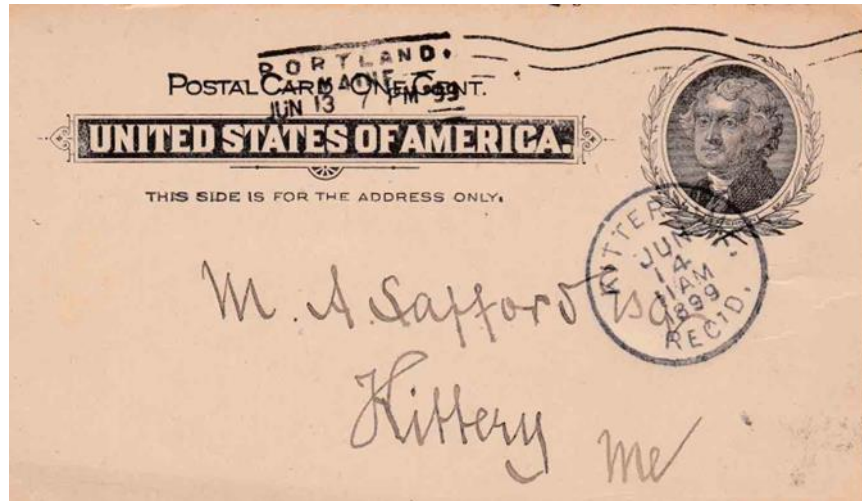 PORTLAND.
MAINE
JUN 13 7 PM 99
POSTAL CARD - ONE CENT.
UNITED STATES OF AMERICA.
THIS SIDE IS FOR THE ADDRESS ONLY.
KITTERY, ME.
JUN
14
11 AM
1899
REC'D.
M. A. Safford Esq
Kittery
Me